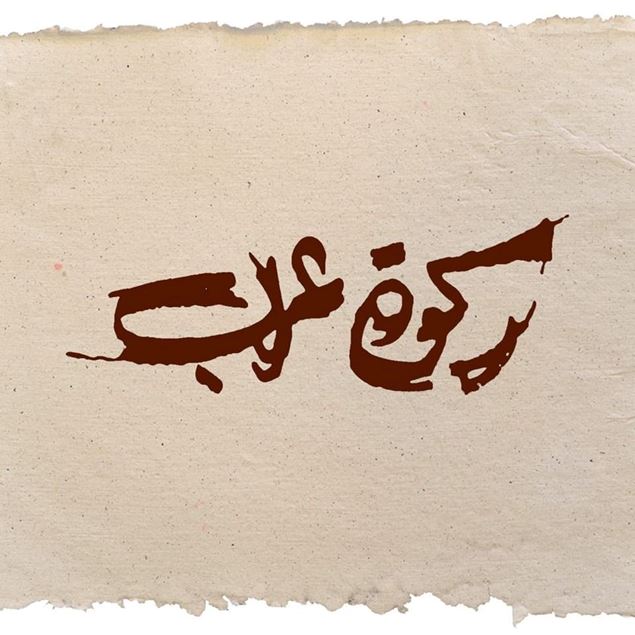 ركوة عرب